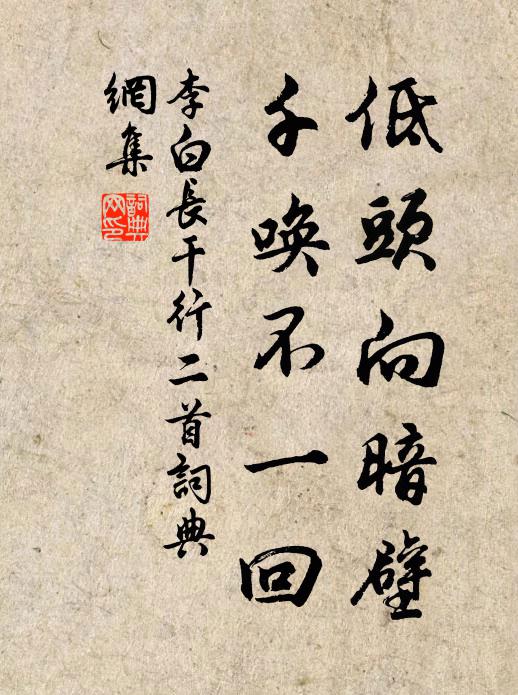 低頭向暗壁
千喚不一回
李白長干行二首詞典
網集
詞典
网印